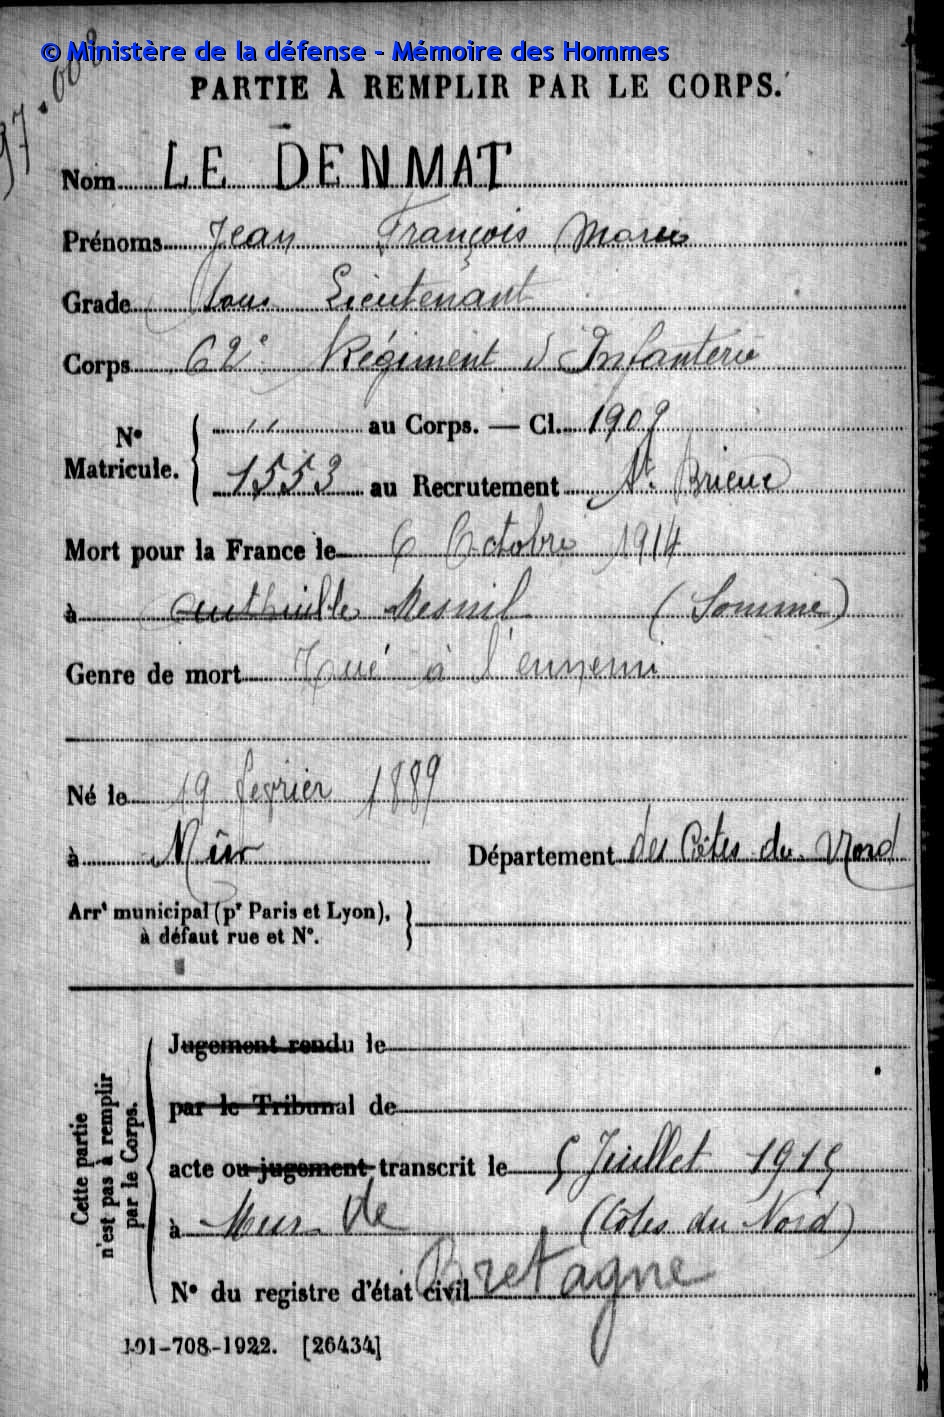 © Ministère de la défense - Mémoire des Hommes
PARTIE À REMPLIR PAR LE CORPS.
Nom LE DENMAT
Prénoms Jean François Marie
Grade Sous Lieutenant
Corps 62e Régiment d'Infanterie
N° Matricule. " au Corps. — Cl. 1909
1553 au Recrutement St. Brieuc
Mort pour la France le 6 Octobre 1914
à Authuille Mesnil (Somme)
Genre de mort Tué à l'ennemi
Né le 19 février 1889
à Mûr Département des Côtes du Nord
Arrt municipal (pr Paris et Lyon),
à défaut rue et N°.
Cette partie
n'est pas à remplir
par le Corps.
Jugement rendu le
par le Tribunal de
acte ou jugement transcrit le 5 Juillet 1915
à Mur de (Côtes du Nord)
Bretagne
N° du registre d'état civil
101-708-1922. [26434]